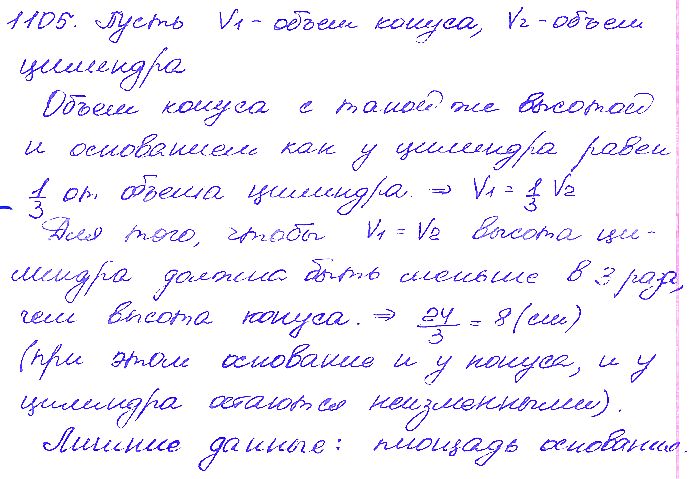 1105. Пусть V1 - объем конуса, V2 - объем
цилиндра
Объем конуса с такой же высотой
и основанием как у цилиндра равен
1/3 от объема цилиндра. ⇒ V1 = 1/3 V2
Для того, чтобы V1 = V2 высота ци-
линдра должна быть меньше в 3 раза,
чем высота конуса. ⇒ 24/3 = 8 (см)
(при этом основание и у конуса, и у
цилиндра остаются неизменными).
Лишние данные: площадь основания.